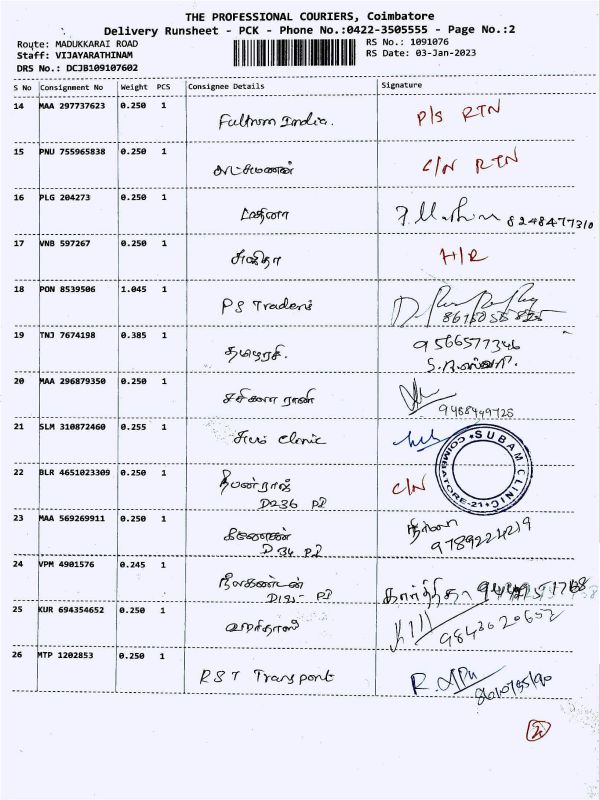 THE PROFESSIONAL COURIERS, Coimbatore
Delivery Runsheet - PCK - Phone No.:0422-3505555 - Page No.:2
Route: MADUKKARAI ROAD
RS No.: 1091076
Staff: VIJAYARATHINAM
RS Date: 03-Jan-2023
DRS No.: DCJB109107602
S No Consignment No Weight PCS Consignee Details Signature
14 MAA 297737623 0.250 1 Fultrum India. P/S RTN
15 PNU 755965838 0.250 1 லட்சுமணன் C/N RTN
16 PLG 204273 0.250 1 8248477310
17 VNB 597267 0.250 1 H/R
18 PON 8539506 1.045 1 PS Traders
19 TNJ 7674198 0.385 1 தமிழரசி. 9566577346
20 MAA 296879350 0.250 1 சசிகலா ராணி 9468449725
21 SLM 310872460 0.255 1 சுபம் Clinic
SUBAM CLINIC COIMBATORE-21
22 BLR 4651023309 0.250 1 C/N
D236 PI
23 MAA 569269911 0.250 1 நிர்மலா
D 34 PI 9789224219
24 VPM 4901576 0.245 1 நீலகண்டன்
25 KUR 694354652 0.250 1 9843020652
26 MTP 1202853 0.250 1 RST Transport